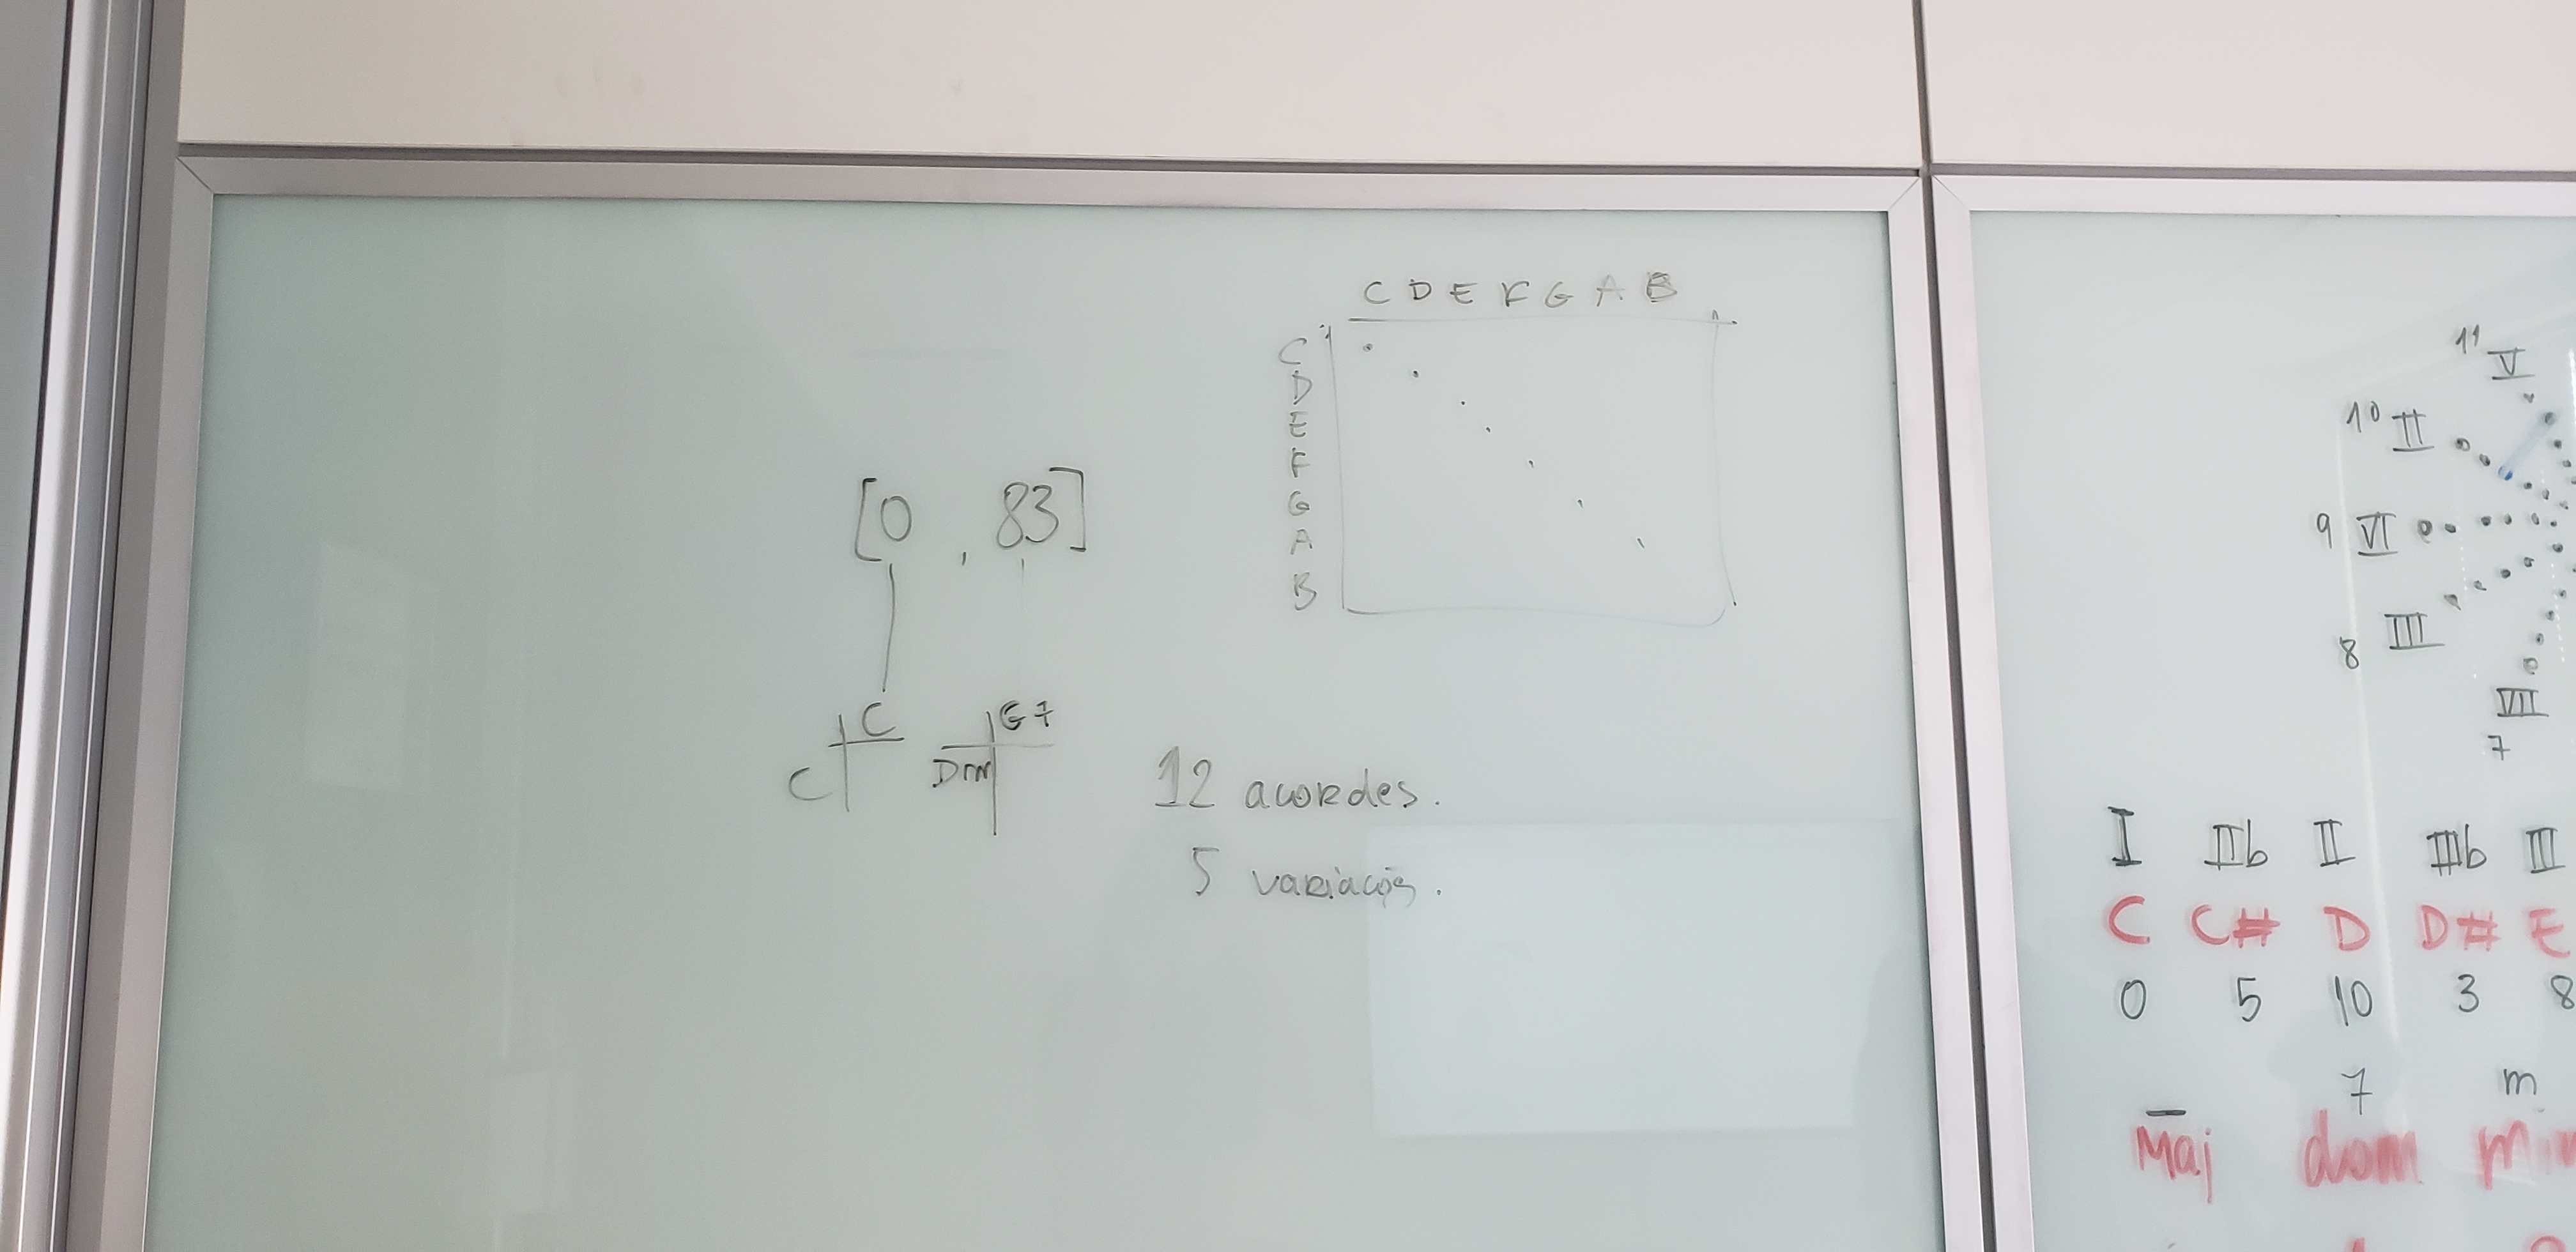 C D E F G A B
C
D
E
F
G
A
B
[0 , 83]
C
C
G7
Dm
12 acordes.
5 variações.
11 V
10 II
9 VI
8 III
VII
7
I IIb II IIIb III
C C# D D# E
0 5 10 3 8
– 7 m
Maj dom min